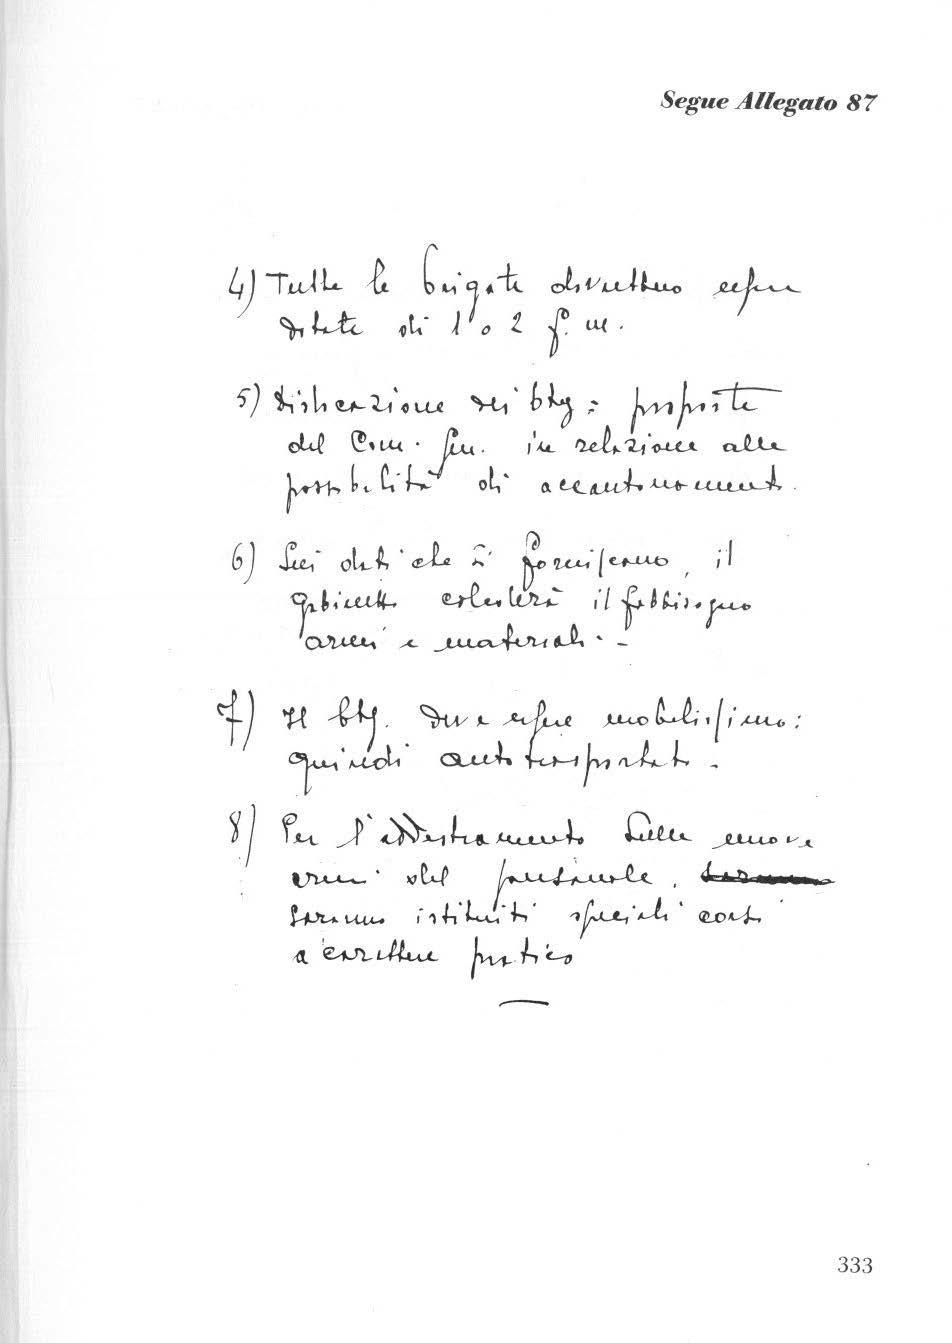 Segue Allegato 87
4) Tutte le brigate dovrebbero essere
dotate di 1 o 2 f. m.
5) Dislocazione dei btg: proposte
del Com. Gen. in relazione alle
possibilità di accantonamento.
6) Sui dati che si forniscono, il
gabinetto calcolerà il fabbisogno
armi e materiali. -
7) Il btg. deve essere mobilissimo:
quindi autotrasportato.
8) Per l'addestramento sulle nuove
armi del personale,
saranno istituiti speciali corsi
a carattere pratico
333